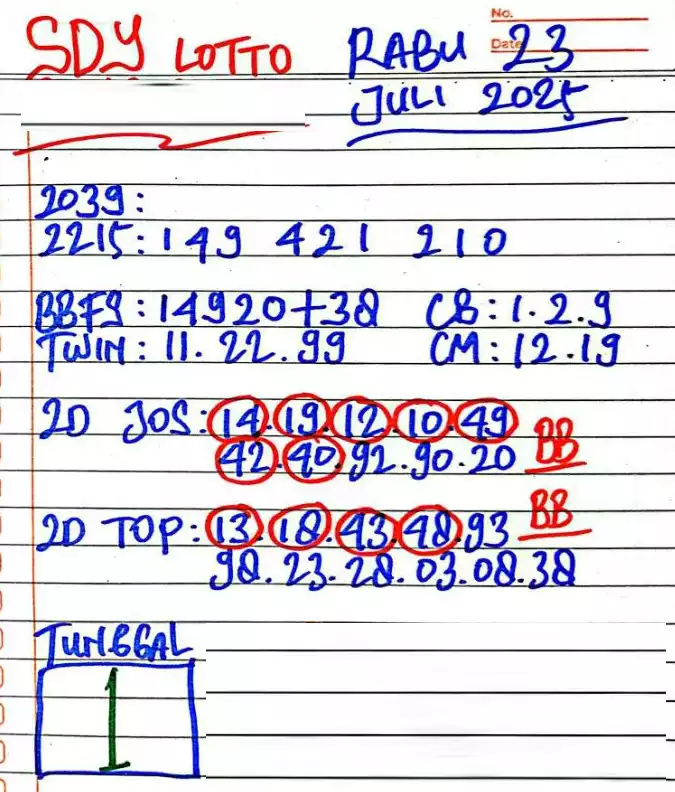 No.
Date
SDY LOTTO RABU 23
JULI 2025
2039:
2215: 149 421 210
BBFS: 14920+38 CB: 1.2.9
TWIN: 11.22.99 CM: 12.19
2D JOS: 14.19.12.10.49
42.40.92.90.20 BB
2D TOP: 13.18.43.48.93 BB
98.23.28.03.08.38
TUNGGAL
1